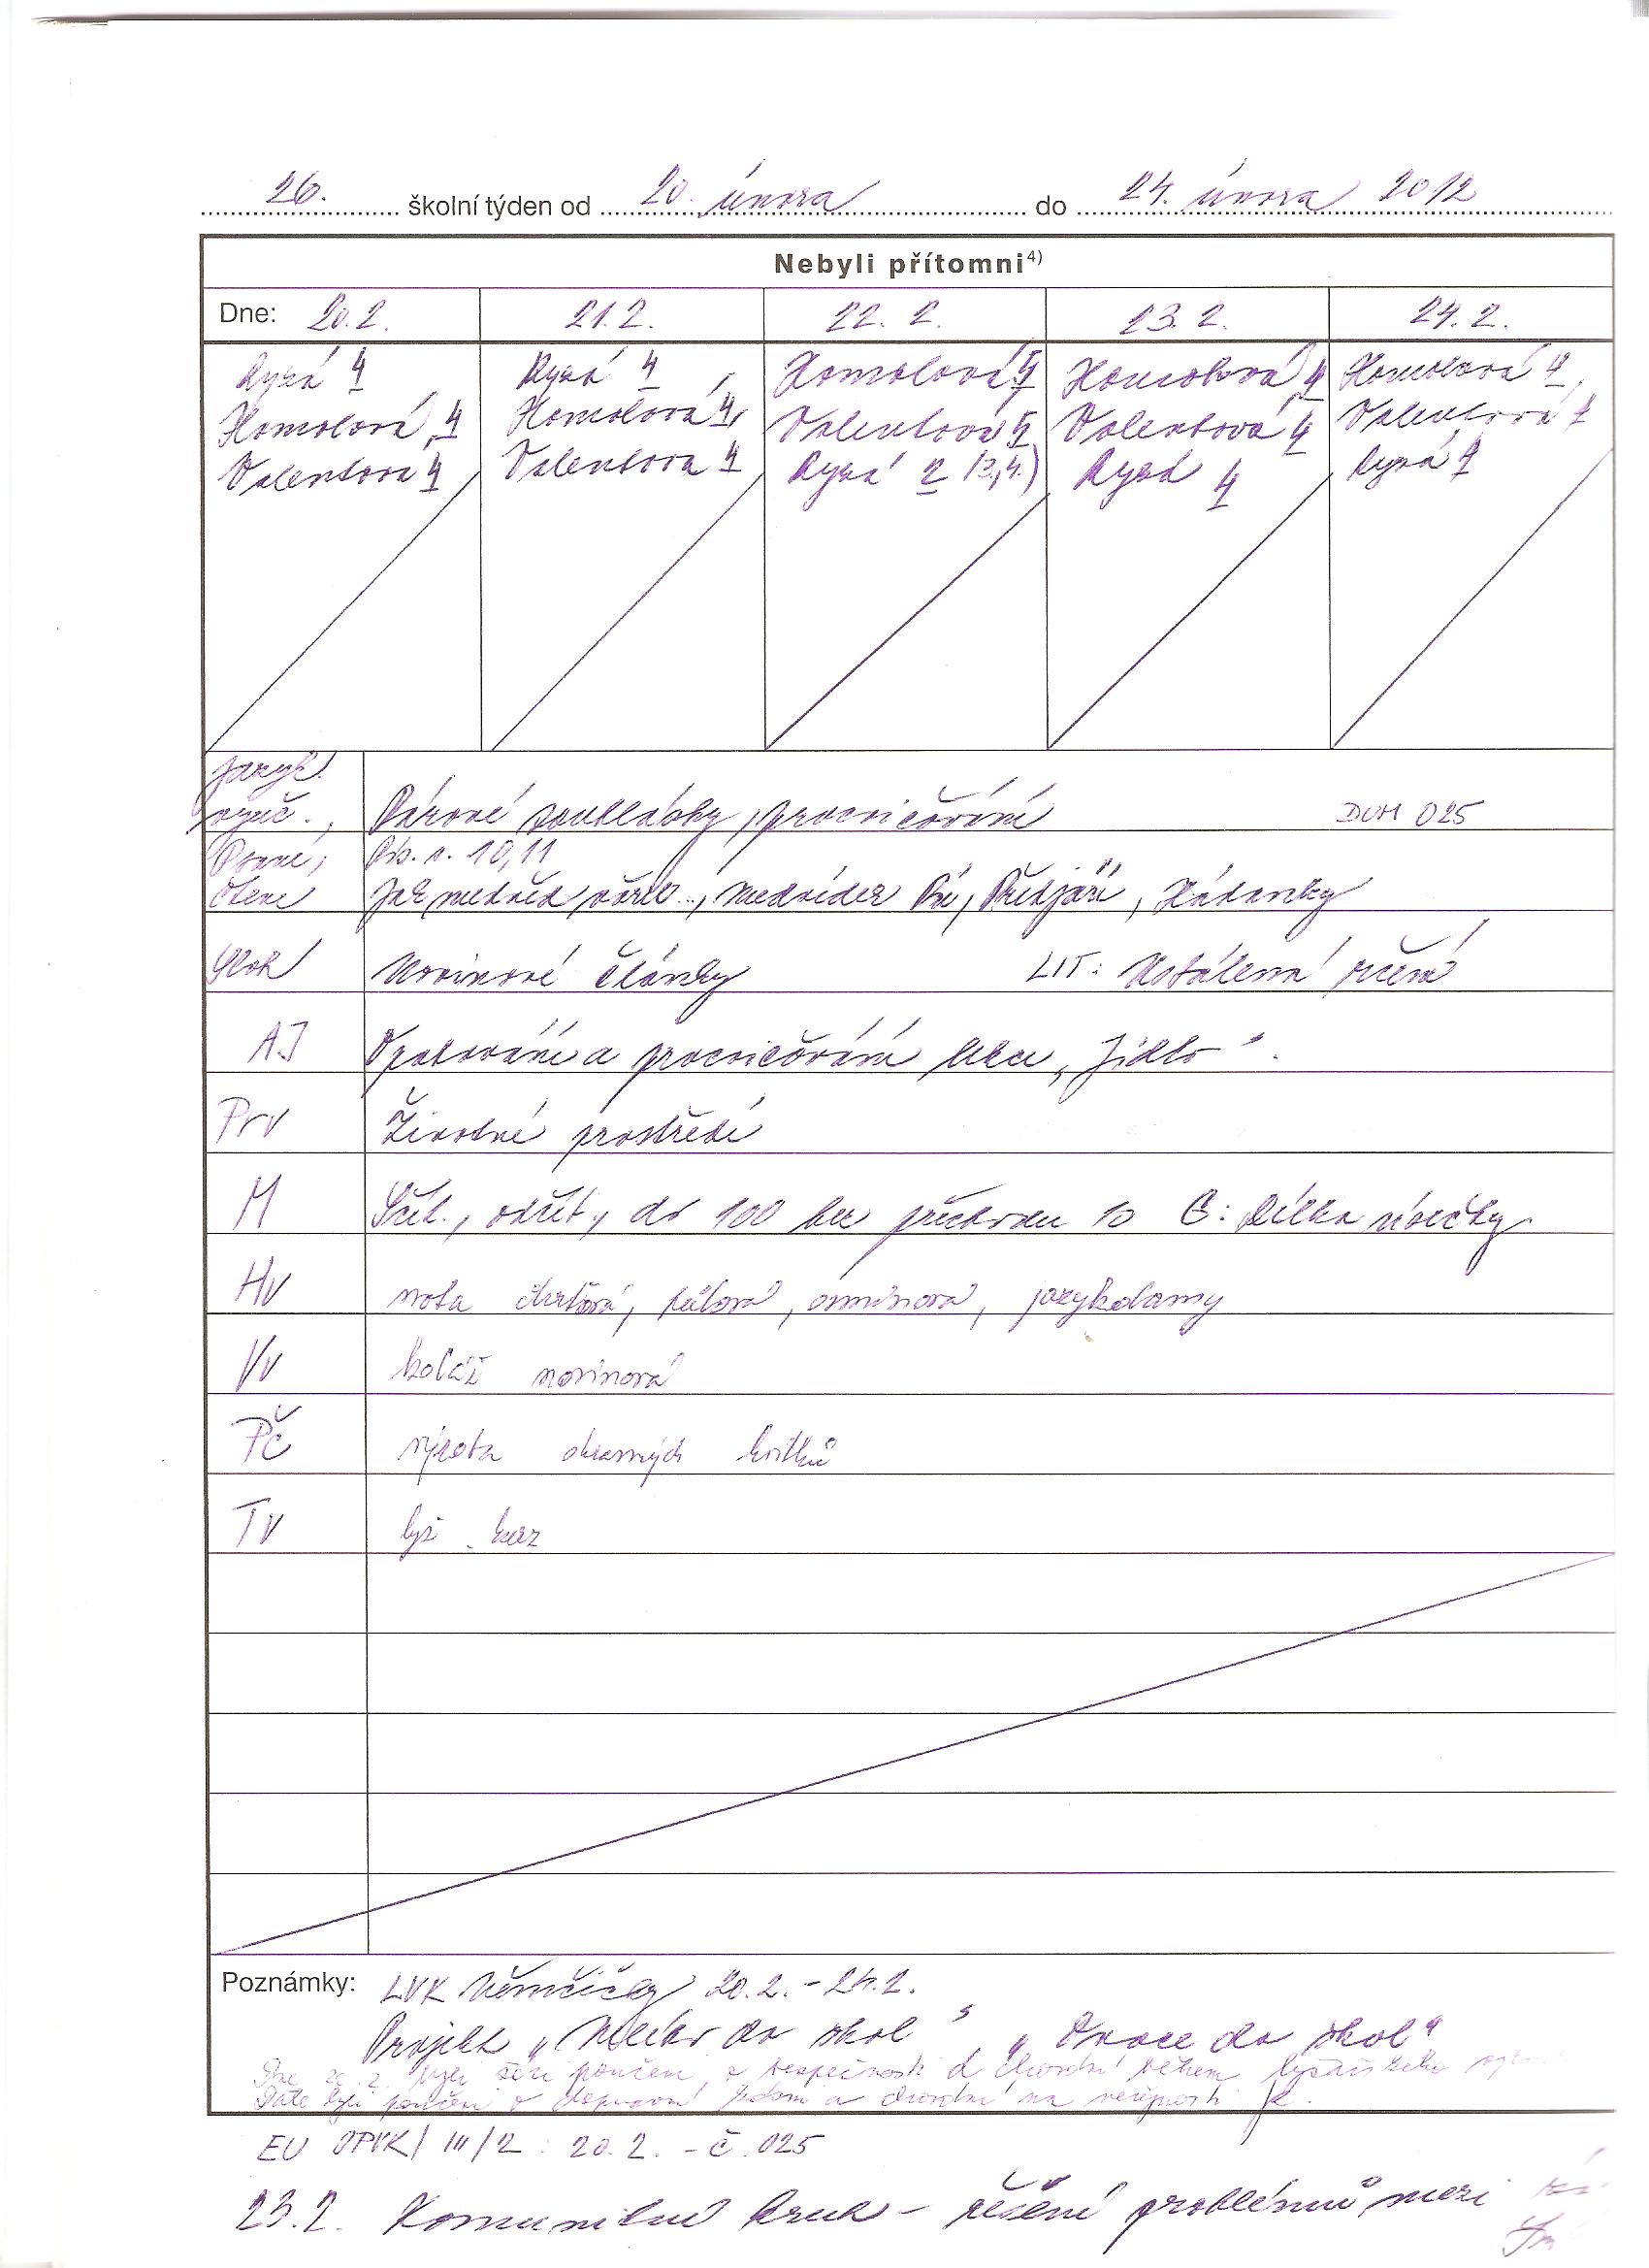 26. školní týden od 20. února do 24. února 2012
Nebyli přítomni4)
Dne: 20.2. 21.2. 22. 2. 23. 2. 24. 2.
Ryzá 4 Ryzá 4 Homolová 4 Homolová 4 Homolová 4
Homolová 4 Homolová 4 Valentová 4 Valentová 4 Valentová 4
Valentová 4 Valentova 4 Ryzá 2 (3,4.) Ryzá 4 Ryzá 4
Jazyk.
vyuč., Párové souhlásky, procvičování DUM 025
Psaní, Pís. s. 10,11
Čtení Jak medvěd, Předjaří, Hádanky
Sloh Novinové články LIT:
AJ Opakování a procvičování lekce „Jídlo".
Prv Životné prostředí
M Sčít., odčít., do 100 bez přechodu 10 G: Délka úsečky
Hv nota čtvrťová, půlová, osminová, jazykolamy
Vv koláž novinová
Pč výroba okrasných kvítků
Tv lyž. kurz
Poznámky: LVK Němčičky 20.2. - 24.2.
Projekt „Mléko do škol" „Ovoce do škol"
Dne 20. 2. byli žáci poučeni o bezpečnosti a chování během lyžařského
Dále byli poučeni o dopravní kázni a chování na veřejnosti
EU OPVK/ III/2: 20. 2. - č. 025
23.2. Komunitní kruh - řešení problémů mezi